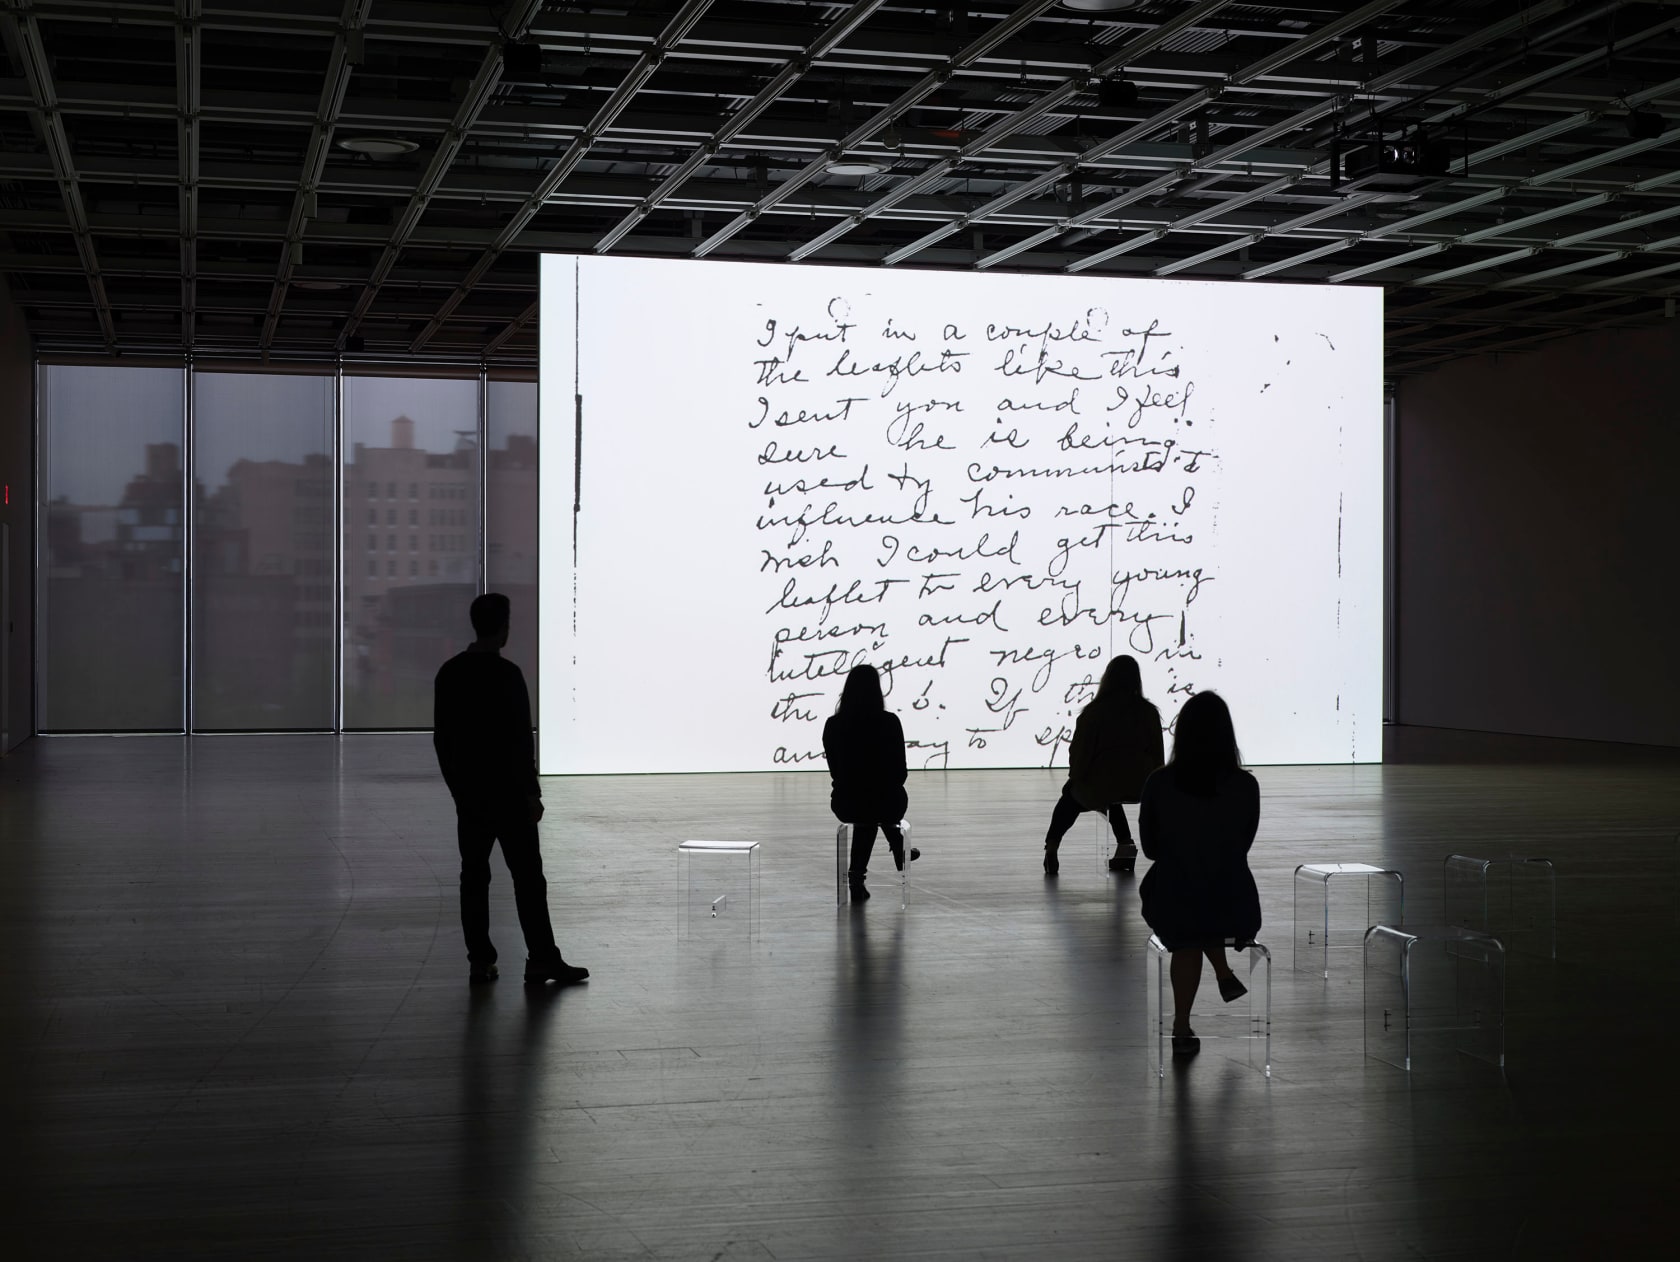 I put in a couple of
the leaflets like this
I sent you and I feel
sure he is being
used by communists to
influence his race. I
wish I could get this
leaflet to every young
person and every
intelligent negro in
the S. If is
to